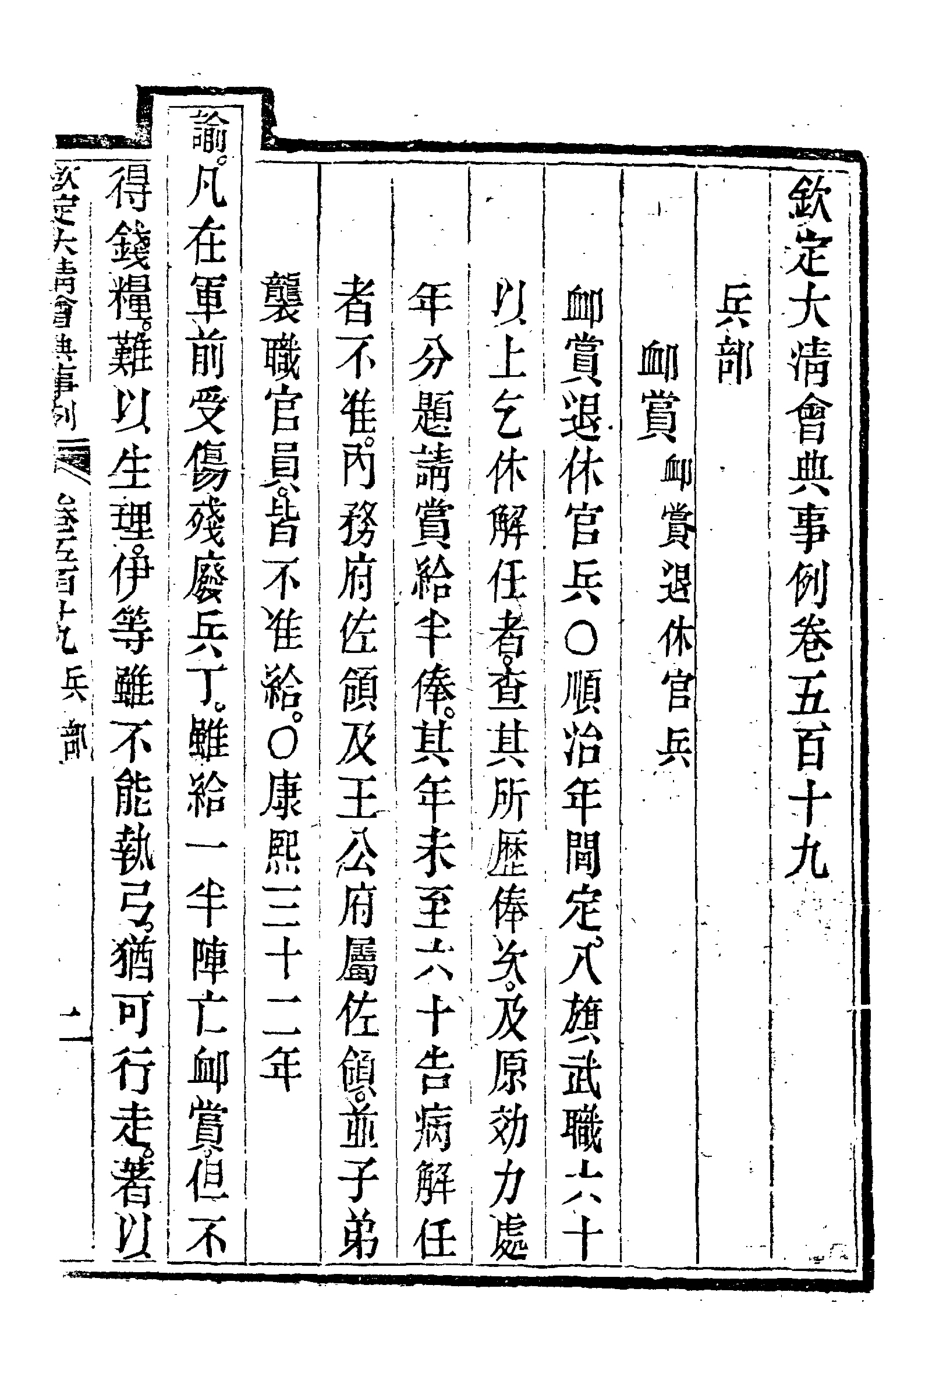 欽定大淸會典事例卷五百十九
兵部
卹賞 卹賞退休官兵
卹賞退休官兵〇順治年間定。八旗武職六十
以上乞休解任者。查其所歷俸次。及原効力處
年分題請賞給半俸。其年未至六十告病解任
者不准。內務府佐領及王公府屬佐領。並子弟
襲職官員。皆不准給。〇康熙三十二年
諭。凡在軍前受傷殘廢兵丁。雖給一半陣亡卹賞。但不
得錢糧。難以生理。伊等雖不能執弓。猶可行走。著以
欽定大淸會典事例 卷五百十九 兵部 一